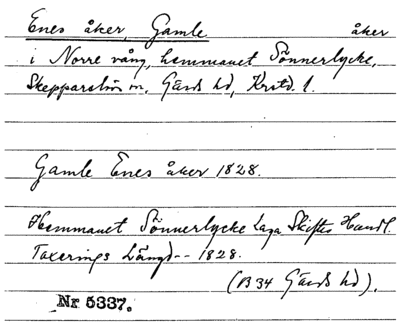 Enes åker, Gamle åker
i Norre vång, hemmanet Sönnerlycke,
Skepparslöv sn, Gärds hd, Krstd. l.
Gamle Enes åker 1828.
Hemmanet Sönnerlycke Laga Skiftes Handl.
Taxerings Längd -- 1828.
(B 34 Gärds hd).
Nr 5337.